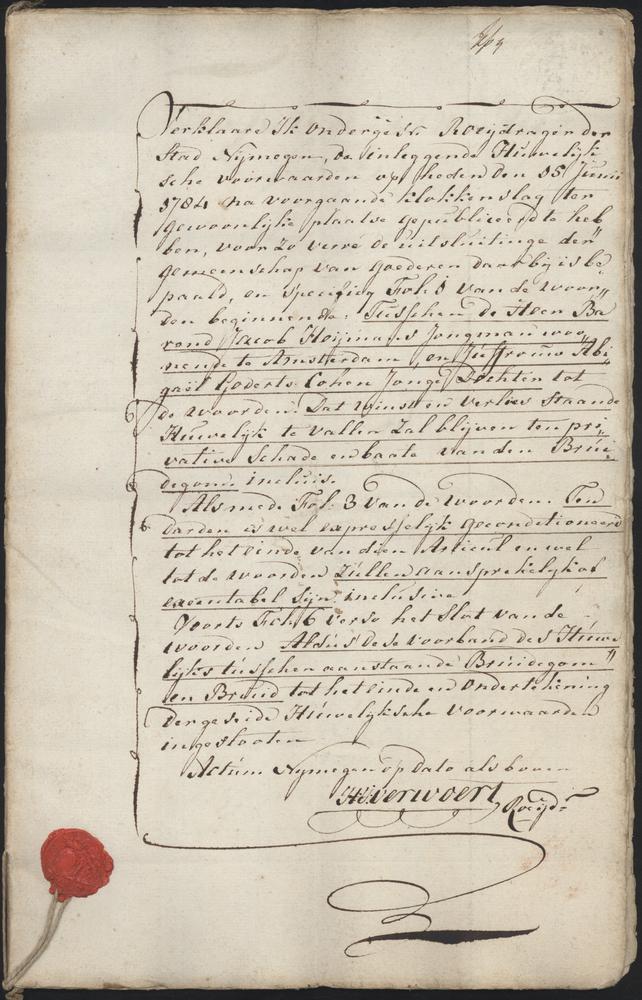 Verklaare Ik ondergesr. Roeijdrager der
Stad Nymegen, de inleggende Huwelijk
sche voorwaarden op heden den 15 Junii
1784 na voorgaande klokkenslag ter
gewoonlijke plaatse gepubliceerd te heb„
ben, voor zo verre de uitsluitinge der
gemeenschap van goederen daar bij is be„
paald, en specifieq Fol: 1 van de woor„
den beginnende: Tusschen de Heer Ba
rond Jacob Heijmans Jongman woo„
nende te Amsterdam, en Juffrouw Abi„
gaël Goderts Cohen Jonge Dochter tot
de woorden: Dat winst en verlies Staande
Huwelijk te vallen zal blijven ten pri„
vative Schade en baate van den Brui„
degom incluis.
Als mede Fol: 3 van de woorden: Ten
darden is wel expresselijk geconditioneerd
tot het einde van dien Articul en wel
tot de woorden zullen aansprekelijk of
executabel zijn inclusive
Voorts Fol: 6 verso het Slot van de
woorden Aldus dese voorband des Huwe
lijks tusschen aanstaande Bruidegom
en Bruid tot het einde en ondertekening
der geseide Huwelijksche voorwaarden
ingeslooten
Actum Nymegen op dato als boven
HVerwoert Roeijdr